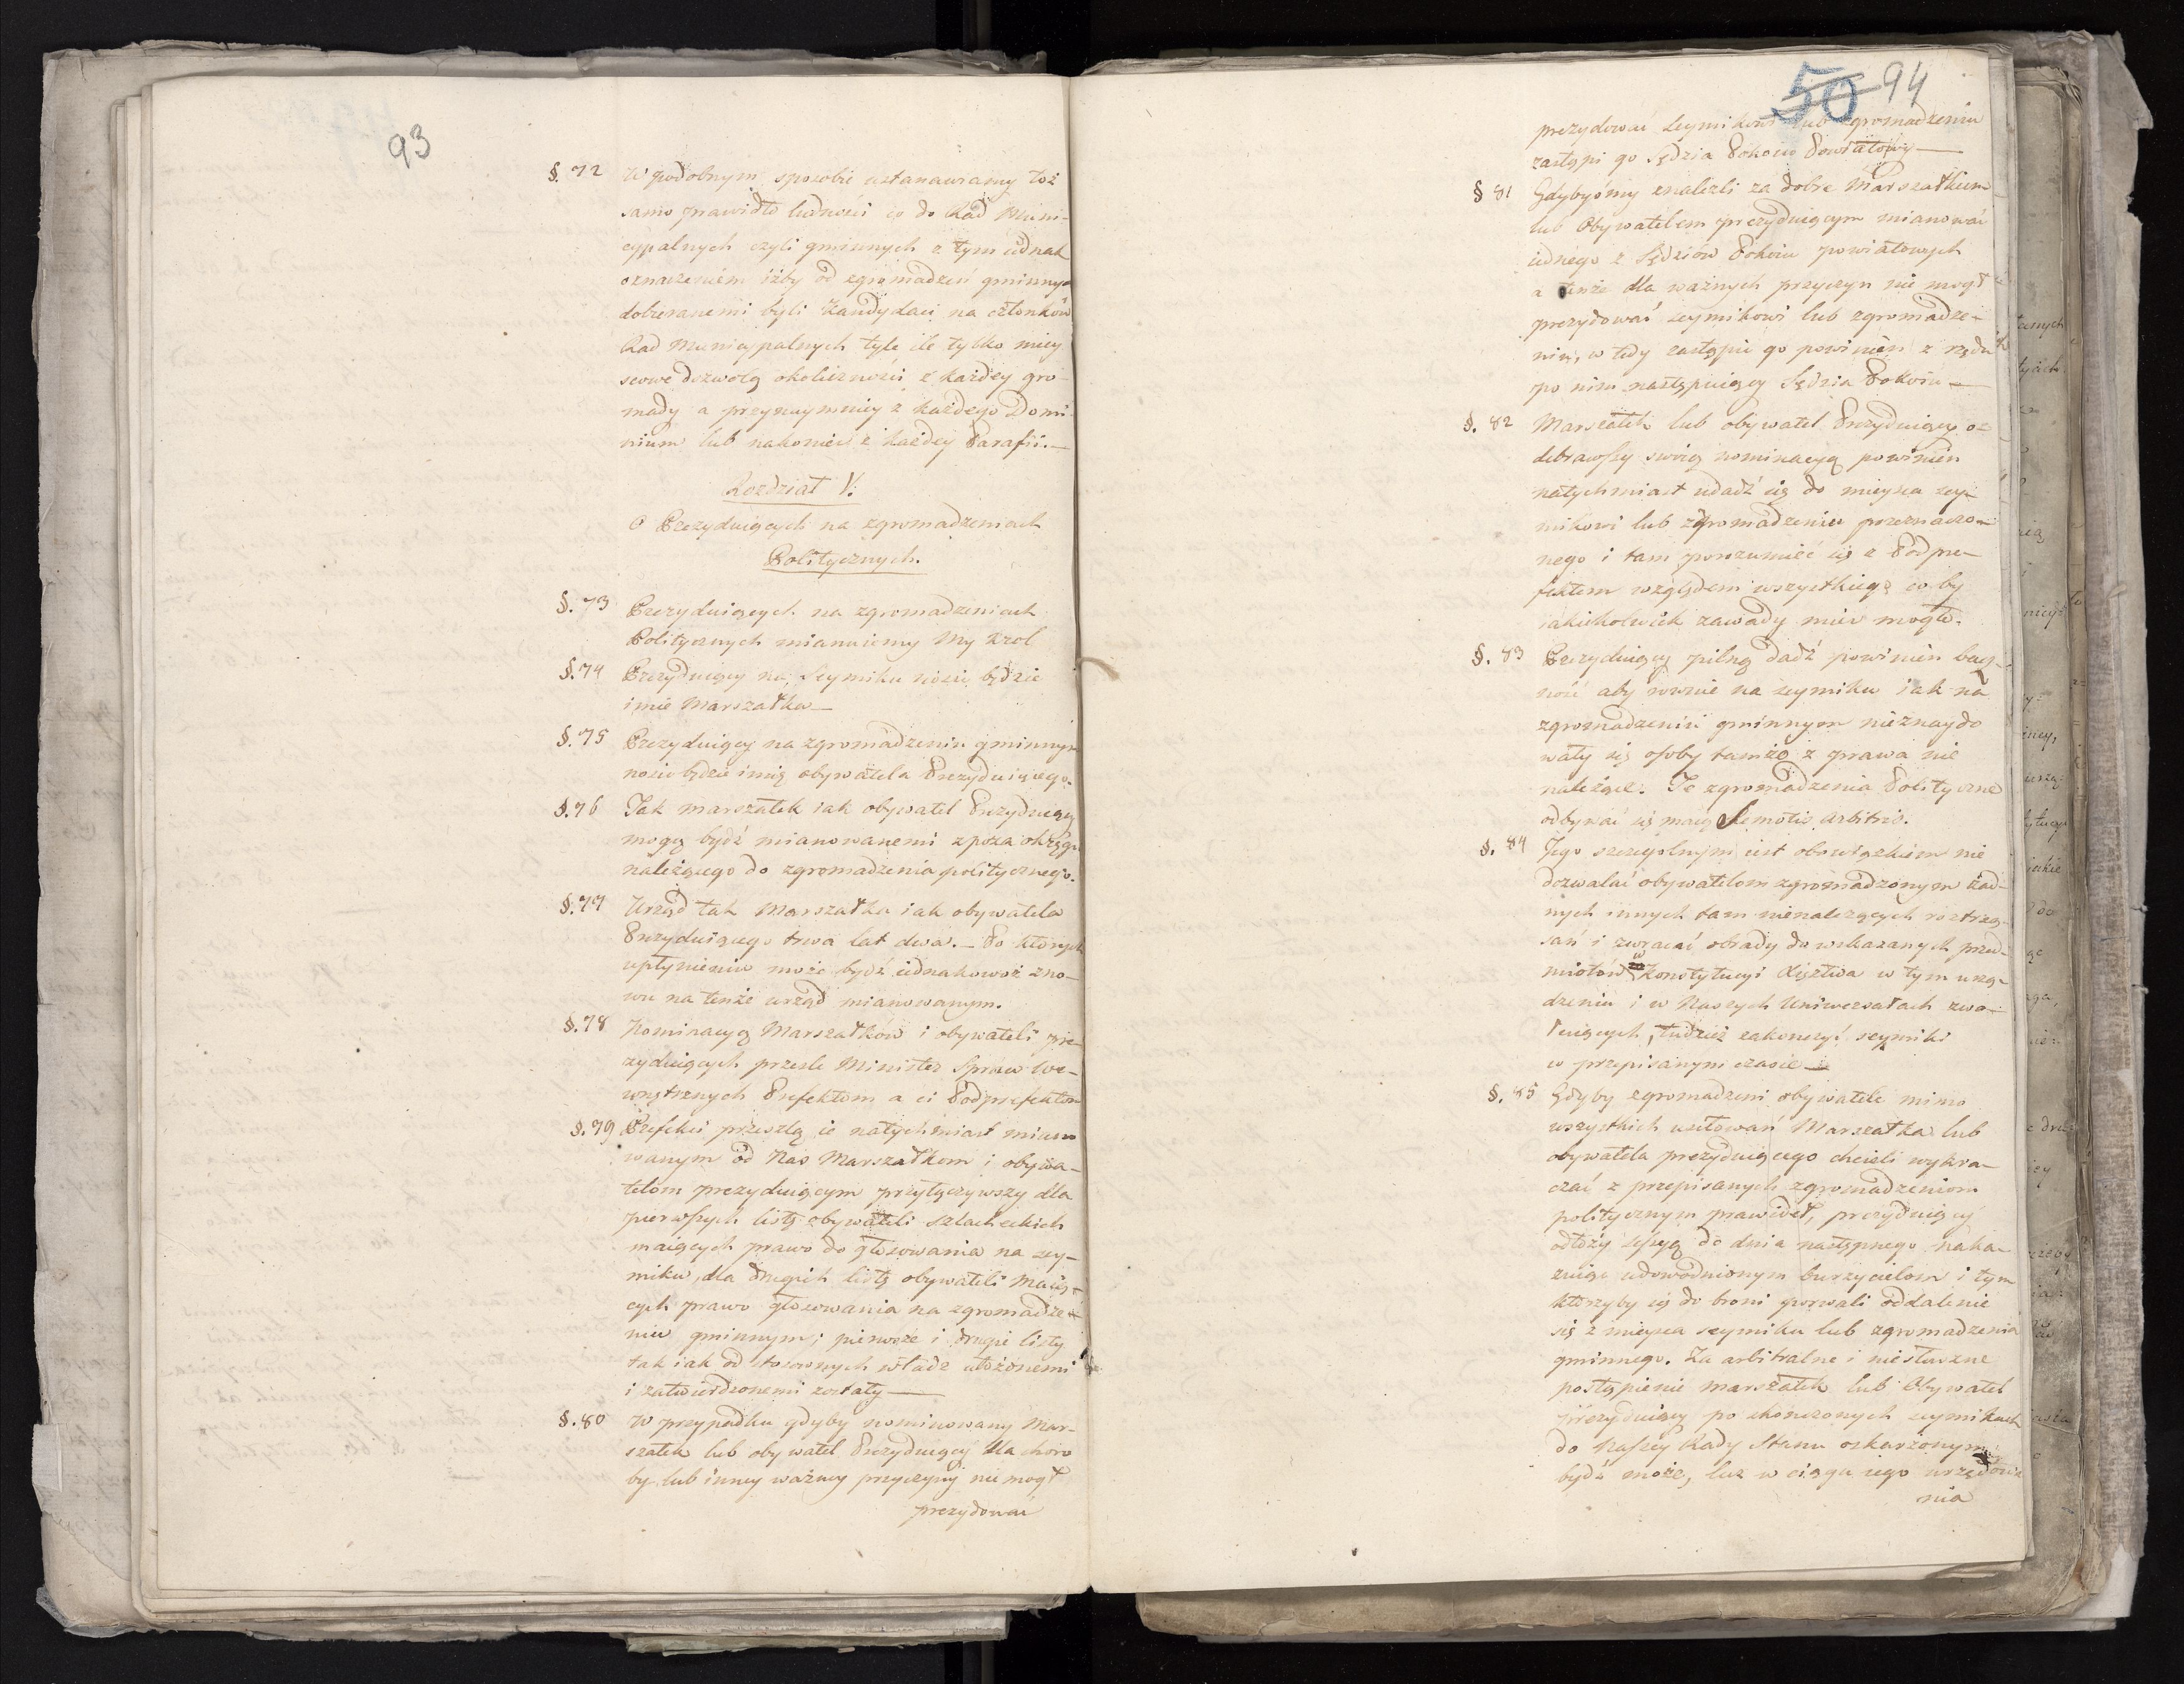 93
§. 72 W podobnym sposobie ustanawiamy toż
samo prawidło ludności co do Rad Muni-
cypalnych czyli gminnych z tym iednak
oznaczeniem iżby od zgromadzeń gminnych
dobieranemi byli Kandydaci na członków
Rad Municypalnych tyle ile tylko miey
scowe dozwolą okoliczności z każdey gro-
mady a przynaymniey z każdego Domi-
nium lub nakoniec z każdey Parafii.—
Rozdział V.
O Prezyduiących na zgromadzeniach
Politycznych.
§. 73 Prezyduiących na zgromadzeniach
Politycznych mianuiemy My Krol
§. 74 Prezyduiący na Seymiku nosić będzie
imie Marszałka—
§. 75 Prezyduiący na zgromadzeniu gminnym
nosić będzie imię obywatela Prezyduiącego.
§. 76 Tak marszałek iak obywatel Prezyduiący
mogą bydź mianowanemi z poza okręgu
należącego do zgromadzenia politycznego.
§. 77 Urząd tak Marszałka iak obywatela
Prezyduiącego trwa lat dwa.— Po których
upłynieniu może bydź iednakowoż zno-
wu na tenże urząd mianowanym.
§. 78 Nominacyą Marszałków i obywateli pre-
zyduiących prześle Minister Spraw We-
wnętrznych Prefektom a ci Podprefektom
§. 79 Prefekci prześzlą ie natychmiast miano
wanym od Nas Marszałkom i obywa-
telom prezyduiącym przyłączywszy dla
pierwszych listę obywateli szlacheckich
maiących prawo do głosowania na sey-
miku, dla drugich listę obywateli maią-
cych prawo głosowania na zgromadze-
niu gminnym; pierwsze i drugie listy
tak iak od stosownych władz ułożonemi
i zatwierdzonemi zostały—
§. 80 W przypadku gdyby nominowany Mar-
szałek lub obywatel Prezyduiący dla choro
by lub inney ważney przyczyny nie mogł
prezydować
50 94
prezydować seymikowi lub zgromadzeniu
zastąpi go Sędzia Pokoiu Powiatowy—
§ 81 Gdybyśmy znaleźli za dobre Marszałkiem
lub Obywatelem prezyduiącym mianować
iednego z Sędziów Pokoiu powiatowych
a tenże dla ważnych przyczyn nie mogł
prezydować seymikowi lub zgromadze-
niu, w tedy zastąpić go powinien z rzędu
po nim następuiący Sędzia Pokoiu—
§. 82 Marszałek lub obywatel Prezyduiący o-
debrawszy swoią nominacyą powinien
natychmiast udadź się do mieysca sey-
mikowi lub zgromadzeniu przeznaczo-
nego i tam porozumieć się z Podpre-
fektem względem wszystkiego co by
iakieżkolwiek zawady mieć mogło.
§. 83 Prezyduiący pilną dadź powinien bacz-
ność aby rownie na seymiku iak na
zgromadzeniu gminnym nieznaydo
wały się osoby tamże z prawa nie
należące. Te zgromadzenia Polityczne
odbywać się maią Semotis arbitris.
§. 84 Jego szczegolnym iest obowiązkiem nie
dozwalać obywatelom zgromadzonym żad-
nych innych tam nienależących roztrzą-
sań i zwracać obrady do wskazanych przed-
miotów w Konstytucyi Xięstwa w tym urzą-
dzeniu i w Naszych Uniwersałach zwo-
łuiących, tudzież zakończyć seymiki
w przepisanym czasie—
§. 85 Gdyby zgromadzeni obywatele mimo
wszystkich usiłowań Marszałka lub
obywatela prezyduiącego chcieli wykra-
czać z przepisanych zgromadzeniom
politycznym prawideł, prezyduiący
odłoży sessyą do dnia następnego naka-
zuiąc udowodnionym burzycielom i tym
ktorzyby się do broni porwali oddalenie
się z mieysca seymiku lub zgromadzenia
gminnego. Za arbitralne i niesłuszne
postąpienie marszałek lub Obywatel
prezyduiący po skończonych seymikach
do Naszey Rady Stanu oskarżonym
bydź może, lecz w ciągu iego urzędowa
nia